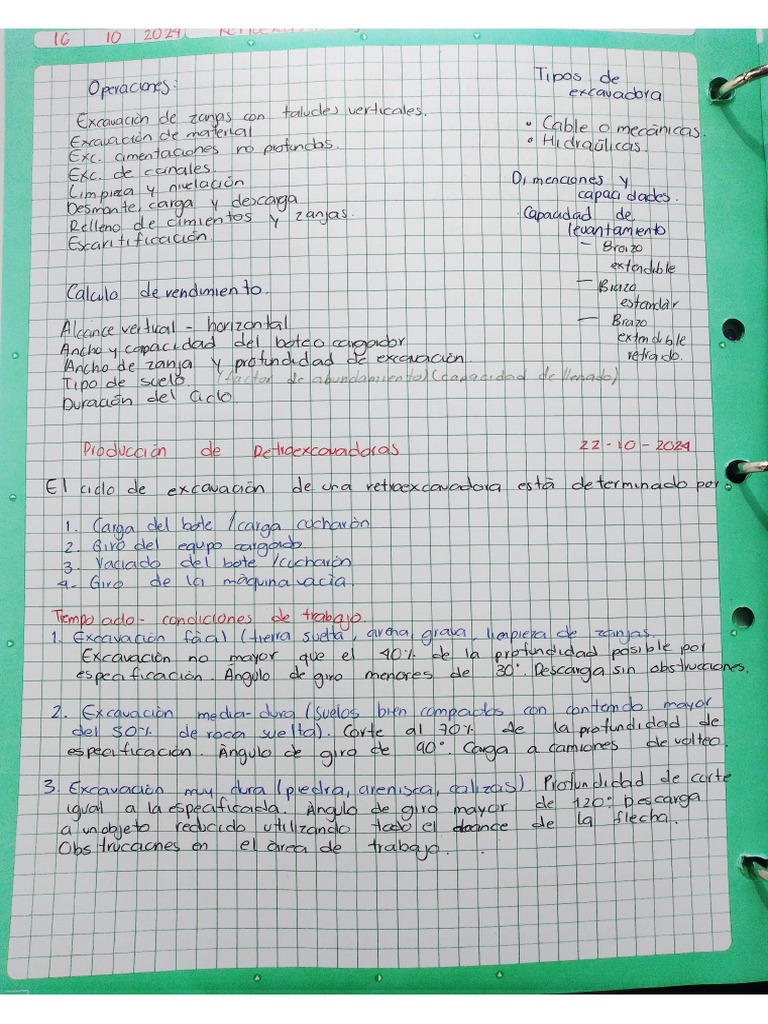 16 10 2024
Operaciones:
Excavación de zanjas con taludes verticales.
Excavación de material
Exc. cimentaciones no profundas.
Exc. de canales.
Limpieza y nivelación
Desmonte, carga y descarga
Relleno de cimientos y zanjas.
Escaritificación
Tipos de
excavadora
• Cable o mecánicas.
• Hidraúlicas.
Dimenciones y
capacidades.
Capacidad de
levantamiento
– Brazo
extendible
– Brazo
estandar
– Brazo
extendible
retraído.
Calculo de rendimiento.
Alcance vertical - horizontal
Ancho y capacidad del boteo cargador
Ancho de zanja y profundidad de excavación.
Tipo de suelo (factor de abundamiento)(capacidad de llenado)
Duración del ciclo.
Producción de Retroexcavadoras 22-10-2024
El ciclo de excavación de una retroexcavadora está determinado por:
1. Carga del bote /carga cucharón
2. Giro del equipo cargado
3. Vaciado del bote /cucharón
4- Giro de la máquina vacia.
Tiempo ado- condiciones de trabajo.
1. Excavación fácil (tierra suelta, arena, grava, limpieza de zanjas.
Excavación no mayor que el 40% de la profundidad posible por
especificación. Ángulo de giro menores de 30°. Descarga sin obstrucciones.
2. Excavación media-dura (suelos bien compactos con contenido mayor
del 50% de roca suelta). Corte al 70% de la profundidad de
especificación. Ángulo de giro de 90°. Carga a camiones de volteo.
3. Excavación muy dura (piedra, arenisca, calizas). Profundidad de corte
igual a la especificada. Ángulo de giro mayor de 120° Descarga
a un objeto reducido utilizando todo el alcance de la flecha.
Obstrucciones en el área de trabajo.